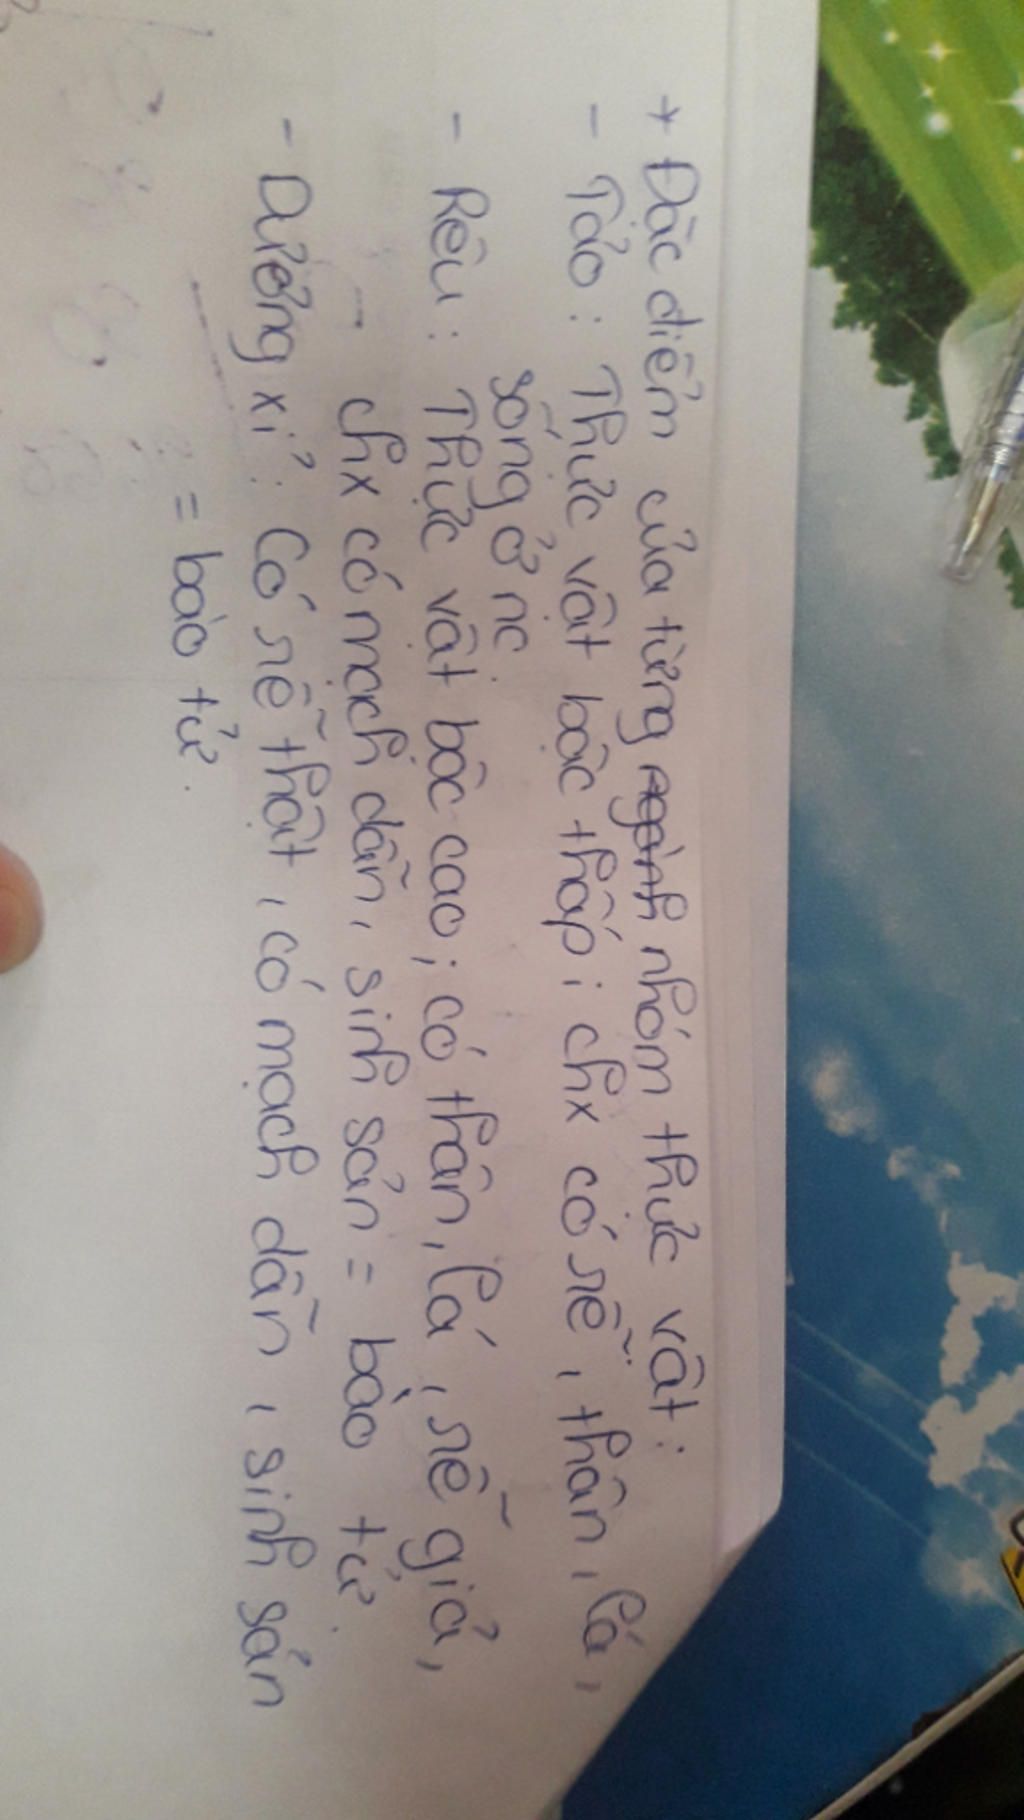 + Đặc điểm của từng ngành nhóm thực vật:
- Tảo: Thực vật bậc thấp; chx có rễ, thân, lá,
sống ở nc
- Rêu: Thực vật bậc cao; có thân, lá, rễ giả,
chx có mạch dẫn, sinh sản = bào tử.
- Dương xỉ: Có rễ thật, có mạch dẫn, sinh sản
= bào tử.